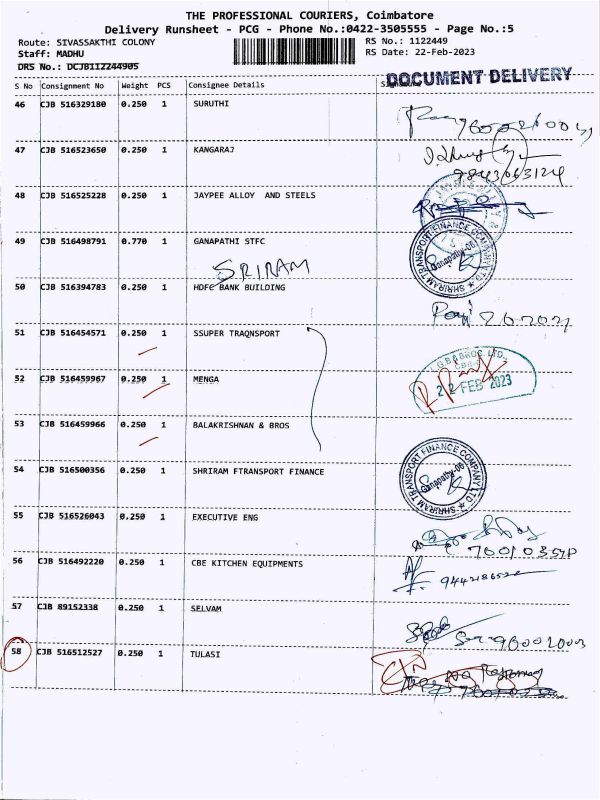 THE PROFESSIONAL COURIERS, Coimbatore
Delivery Runsheet - PCG - Phone No.:0422-3505555 - Page No.:5
Route: SIVASSAKTHI COLONY RS No.: 1122449
Staff: MADHU RS Date: 22-Feb-2023
DRS No.: DCJB11Z244905
DOCUMENT DELIVERY
S No Consignment No Weight PCS Consignee Details
46 CJB 516329180 0.250 1 SURUTHI
47 CJB 516523650 0.250 1 KANGARAJ
9843063124
48 CJB 516525228 0.250 1 JAYPEE ALLOY AND STEELS
49 CJB 516498791 0.770 1 GANAPATHI STFC
SHRIRAM TRANSPORT FINANCE COMPANY LTD
Ganapathy-06
SRIRAM
50 CJB 516394783 0.250 1 HDFC BANK BUILDING
51 CJB 516454571 0.250 1 SSUPER TRAQNSPORT
L.G.B & BROS. LTD.,
52 CJB 516459967 0.250 1 MENGA
22 FEB 2023
53 CJB 516459966 0.250 1 BALAKRISHNAN & BROS
54 CJB 516500356 0.250 1 SHRIRAM FTRANSPORT FINANCE
SHRIRAM TRANSPORT FINANCE COMPANY LTD
Ganapathy-06
55 CJB 516526043 0.250 1 EXECUTIVE ENG
56 CJB 516492220 0.250 1 CBE KITCHEN EQUIPMENTS
57 CJB 89152338 0.250 1 SELVAM
58 CJB 516512527 0.250 1 TULASI